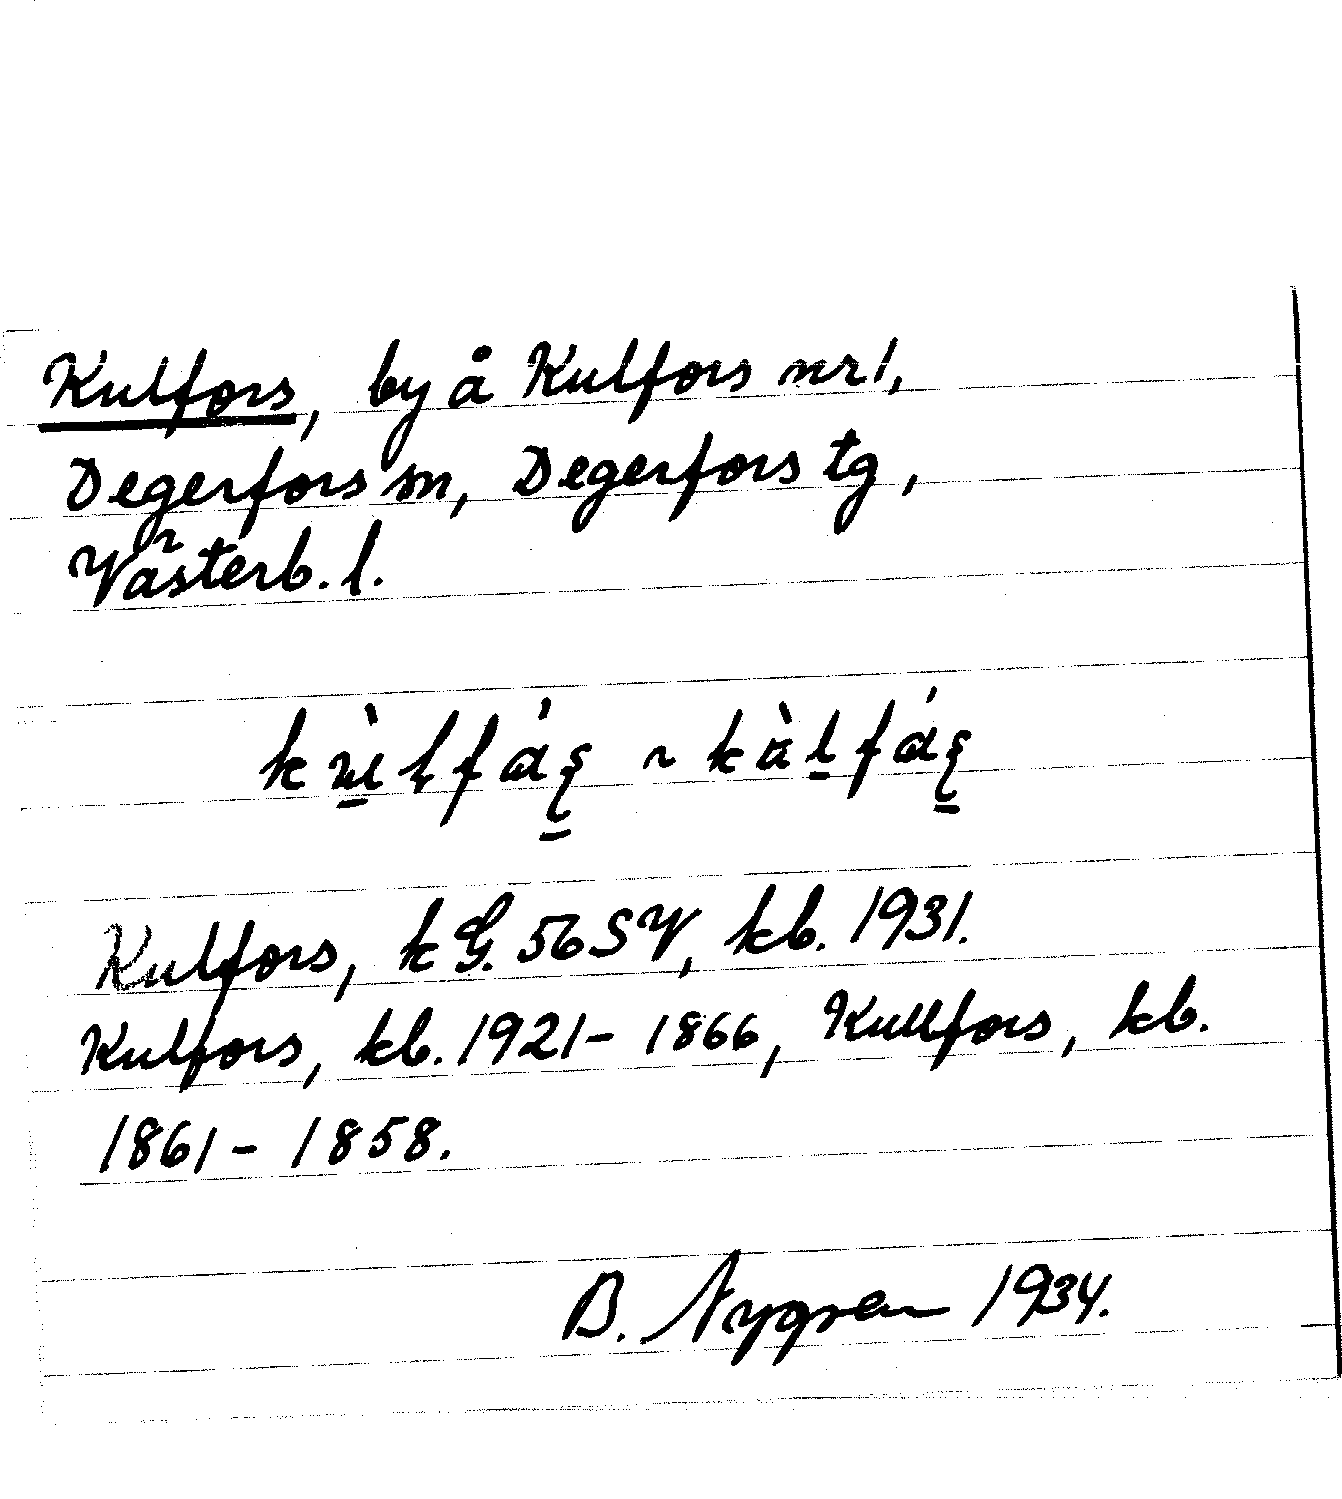 Kulfors, by å Kulfors nr 1,
Degerfors sn, Degerfors tg,
Västerb. l.
Kulfors, kG. 56 SV, kb. 1931.
Kulfors, kb. 1921-1866, Kullfors, kb.
1861-1858.
B. Nygren 1934.